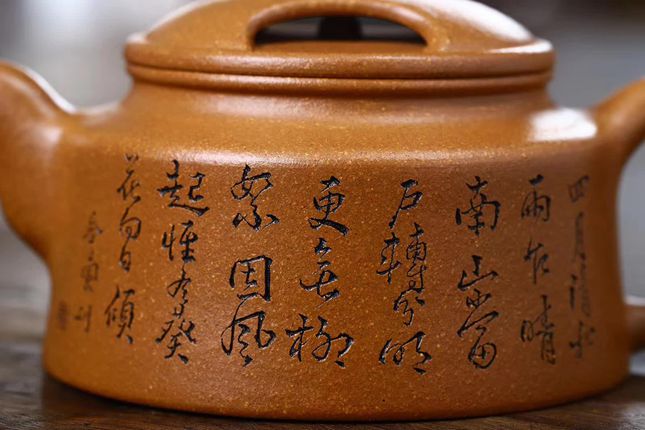 四月清和
雨乍晴
南山當
戶轉分明
更無柳
絮因風
起惟有葵
花向日傾